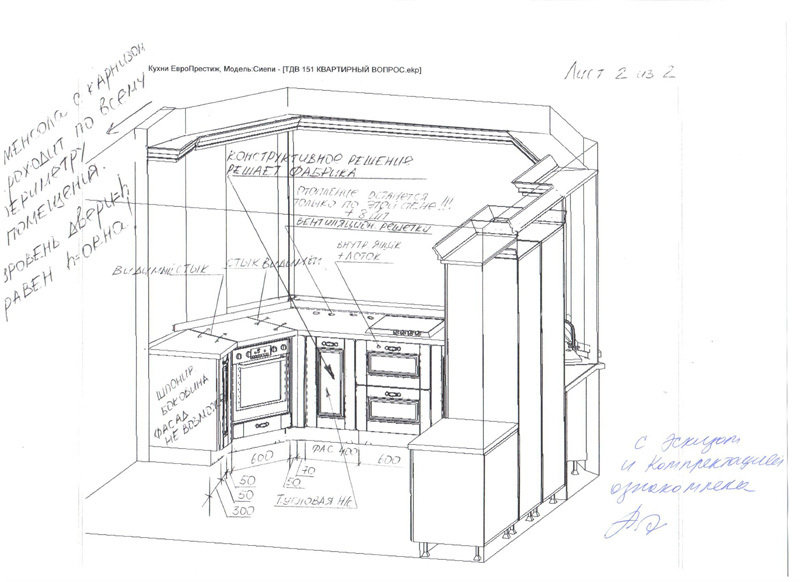 Кухни ЕвроПрестиж, Модель:Сиепи - [ТДВ 151 КВАРТИРНЫЙ ВОПРОС.ekp]
Лист 2 из 2
С КАРНИЗОМ
РОХОДИТ ПО ВСЕМУ
ЕРИМЕТРУ
ПОМЕЩЕНИЯ.
РАВЕН
КОНСТРУКТИВНОЕ РЕШЕНИЕ
РЕШАЕТ ФАБРИКА
ОТОПЛЕНИЕ ОСТАНЕТСЯ
ТОЛЬКО ПО ЭТОЙ СТЕНЕ!!!
+ 3 ШТ
ВЕНТИЛЯЦИОН РЕШЕТКИ
ВНУТР ЯЩИК
+ ЛОТОК
ВИДИМЫЙ СТЫК
СТЫК ВИДИМЫЙ
ШПОНИР
БОКОВИНА
ФАСАД
НЕ ВОЗМОЖ
600
ФАС 400
600
50
50
300
70
50
С Эскизом
и Комплектацией
ознакомлена